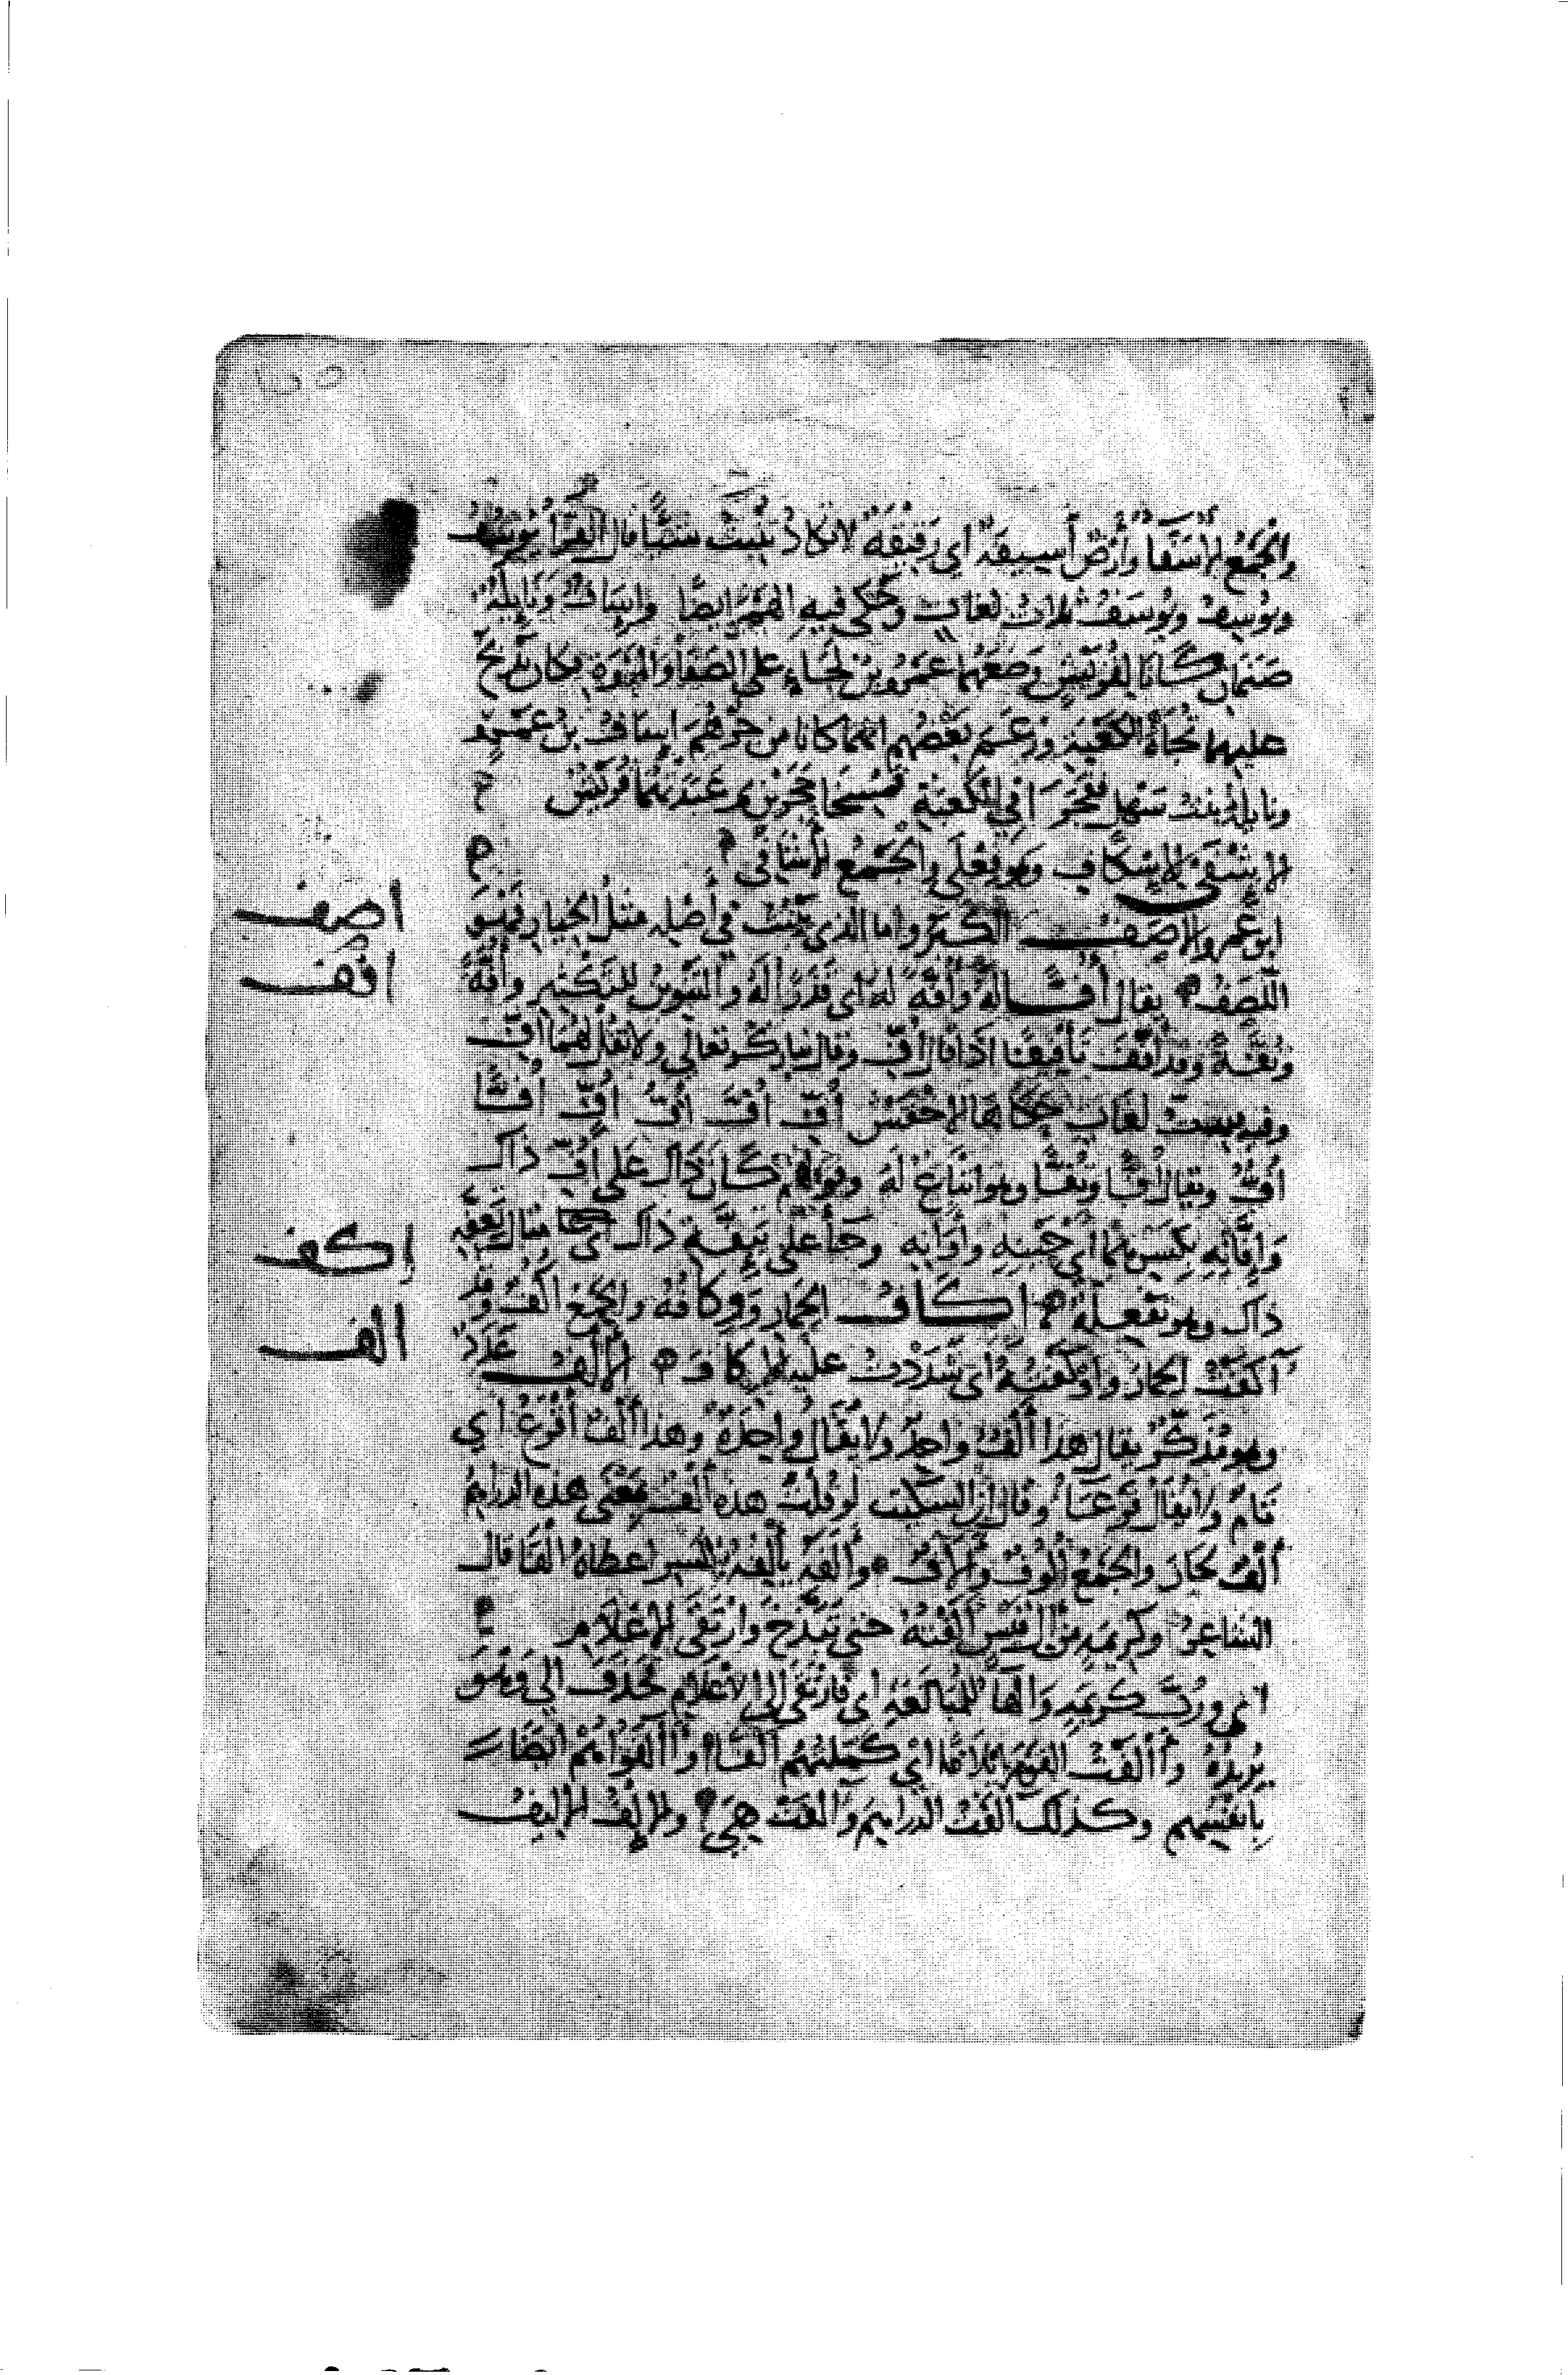 والجمع الأسفاء وأرض أسيفة أي رقيقة لا تكاد تنبت شيئا قال الفرا يوسف
ويوسف ويوسف ثلاث لغات وحكي فيه الهمز ايضا واساف ونايلة
صنمان كانا لقريش وضعهما عمرو بن لحاء على الصفا والمروة فكان يذبح
عليهما تجاه الكعبة وزعم بعضهم انهما كانا من جرهم اساف بن عمرو
ونايلة بنت سهل ففجرا في الكعبة فمسخا حجرين ثم عبدتهما قريش
الإشفى للإسكاف وهو فعلى والجمع الأشافي
اصف
ابن عمرو الاصف الكبر واما الذي ينبت في أصله مثل الخيار فهو
افف
اللصف يقال أفا له وأفة له اي قذرا له والتنوين للتنكير وأفة
وتفة وقد أفف تأفيفا اذا قال أف وقال تبارك وتعالى ولا تقل لهما أف
وفيه ست لغات حكاها الاخفش أف أف أف أف أفا
أف ويقال أفا وتفا وهو اتباع له وقولهم كان ذاك على أف ذاك
وإفانه بكسرهما اي حينه وأوانه وجا على تئفة ذاك مثال تعفة
اكف
ذاك وهو تفعلة إكاف الحمار ووكافه والجمع أكف وقد
الف
آكفت الحمار وأوكفته اي شددت عليه الإكاف الألف عدد
وهو مذكر يقال هذا ألف واحد ولا يقال واحدة وهذا ألف أقرع أي
تام ولا يقال قرعا وقال ابن السكيت لو قلت هذه ألف بمعنى هذه الدراهم
ألف لجاز والجمع ألوف وآلاف وألفه يألفه بالكسر اعطاه الفا قال
الشاعر وكريمة من آل قيس ألفته حتى تبذخ وارتقى الأعلام
اي ورب كريمة والها للمبالغة اي فارتقى إلى الأعلام فحذف الى وهو
يريده وآلفت القوم إيلافا اي كملتهم ألفا وآلفوا هم ايضا
بانفسهم وكذلك آلفت الدراهم وآلفت هي والإلف الأليف